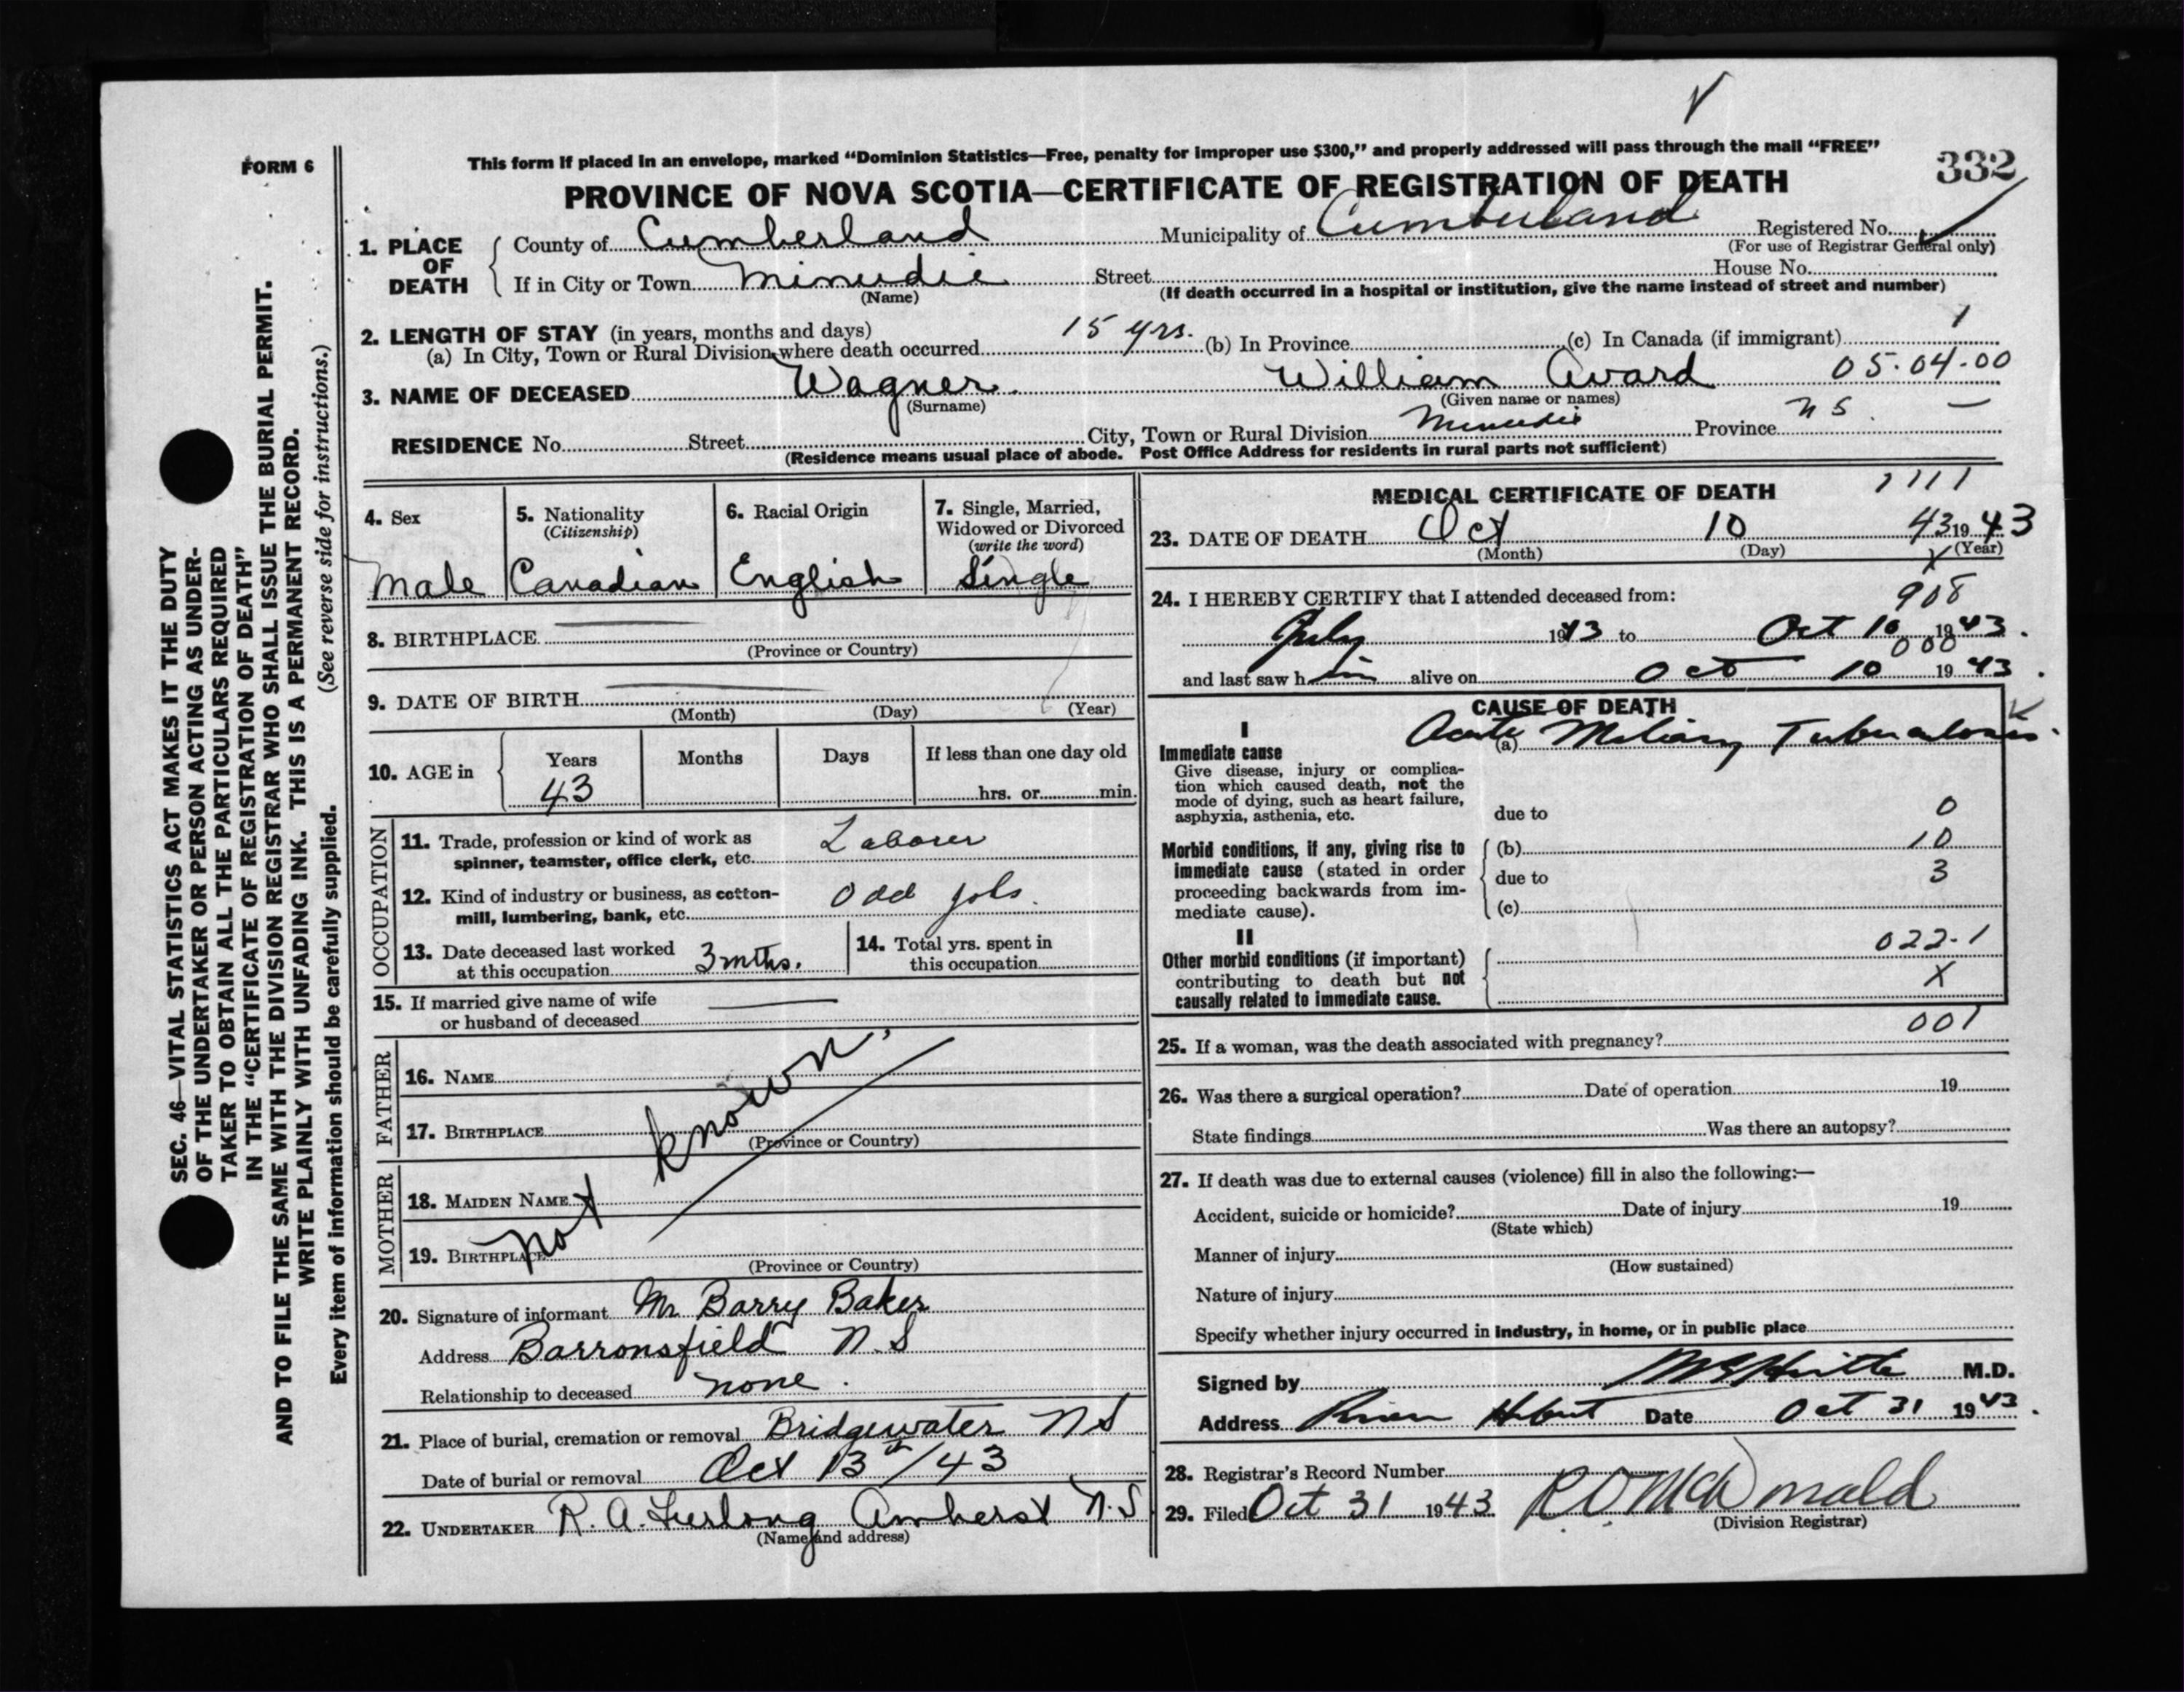 FORM 6
This form if placed in an envelope, marked "Dominion Statistics—Free, penalty for improper use $300," and properly addressed will pass through the mail "FREE"
332
PROVINCE OF NOVA SCOTIA—CERTIFICATE OF REGISTRATION OF DEATH
1. PLACE OF DEATH
County of Cumberland Municipality of Cumberland Registered No.
(For use of Registrar General only)
If in City or Town Minudie Street House No.
(Name) (If death occurred in a hospital or institution, give the name instead of street and number)
2. LENGTH OF STAY (in years, months and days)
(a) In City, Town or Rural Division where death occurred 15 yrs. (b) In Province (c) In Canada (if immigrant) 1
3. NAME OF DECEASED Wagner William Avard 05.04-00
(Surname) (Given name or names)
RESIDENCE No. Street City, Town or Rural Division Minudie Province N S. —
(Residence means usual place of abode. Post Office Address for residents in rural parts not sufficient)
4. Sex
Male
5. Nationality
(Citizenship)
Canadian
6. Racial Origin
English
7. Single, Married,
Widowed or Divorced
(write the word)
Single
8. BIRTHPLACE
(Province or Country)
9. DATE OF BIRTH
(Month) (Day) (Year)
10. AGE in Years Months Days If less than one day old
43 hrs. or min.
OCCUPATION
11. Trade, profession or kind of work as
spinner, teamster, office clerk, etc. Laborer
12. Kind of industry or business, as cotton-
mill, lumbering, bank, etc. Odd jobs.
13. Date deceased last worked
at this occupation 3 mths.
14. Total yrs. spent in
this occupation
15. If married give name of wife
or husband of deceased
FATHER
16. NAME
17. BIRTHPLACE
(Province or Country)
MOTHER
18. MAIDEN NAME
19. BIRTHPLACE
(Province or Country)
not known
20. Signature of informant Mr Barry Baker
Address Barronsfield N.S
Relationship to deceased none.
21. Place of burial, cremation or removal Bridgewater N S
Date of burial or removal Oct 13th/43
22. UNDERTAKER R. A. Furlong Amherst N.S
(Name and address)
MEDICAL CERTIFICATE OF DEATH 1111
23. DATE OF DEATH Oct 10 43 1943
(Month) (Day) (Year)
X
24. I HEREBY CERTIFY that I attended deceased from: 908
July 1943 to Oct 10 1943.
000
and last saw him alive on Oct 10 1943.
CAUSE OF DEATH
I
Immediate cause (a) Acute Miliary Tuberculosis.
Give disease, injury or complica-
tion which caused death, not the
mode of dying, such as heart failure,
asphyxia, asthenia, etc.
due to 0
Morbid conditions, if any, giving rise to
immediate cause (stated in order
proceeding backwards from im-
mediate cause).
(b) 10
due to 3
(c)
II
Other morbid conditions (if important)
contributing to death but not
causally related to immediate cause.
022-1
X
001
25. If a woman, was the death associated with pregnancy?
26. Was there a surgical operation? Date of operation 19
State findings Was there an autopsy?
27. If death was due to external causes (violence) fill in also the following:—
Accident, suicide or homicide? Date of injury 19
(State which)
Manner of injury
(How sustained)
Nature of injury
Specify whether injury occurred in industry, in home, or in public place
Signed by M.D.
Address River Hebert Date Oct 31 1943.
28. Registrar's Record Number
29. Filed Oct 31 1943. R O McDonald
(Division Registrar)
SEC. 46—VITAL STATISTICS ACT MAKES IT THE DUTY
OF THE UNDERTAKER OR PERSON ACTING AS UNDER-
TAKER TO OBTAIN ALL THE PARTICULARS REQUIRED
IN THE "CERTIFICATE OF REGISTRATION OF DEATH"
AND TO FILE THE SAME WITH THE DIVISION REGISTRAR WHO SHALL ISSUE THE BURIAL PERMIT.
WRITE PLAINLY WITH UNFADING INK. THIS IS A PERMANENT RECORD.
Every item of information should be carefully supplied. (See reverse side for instructions.)